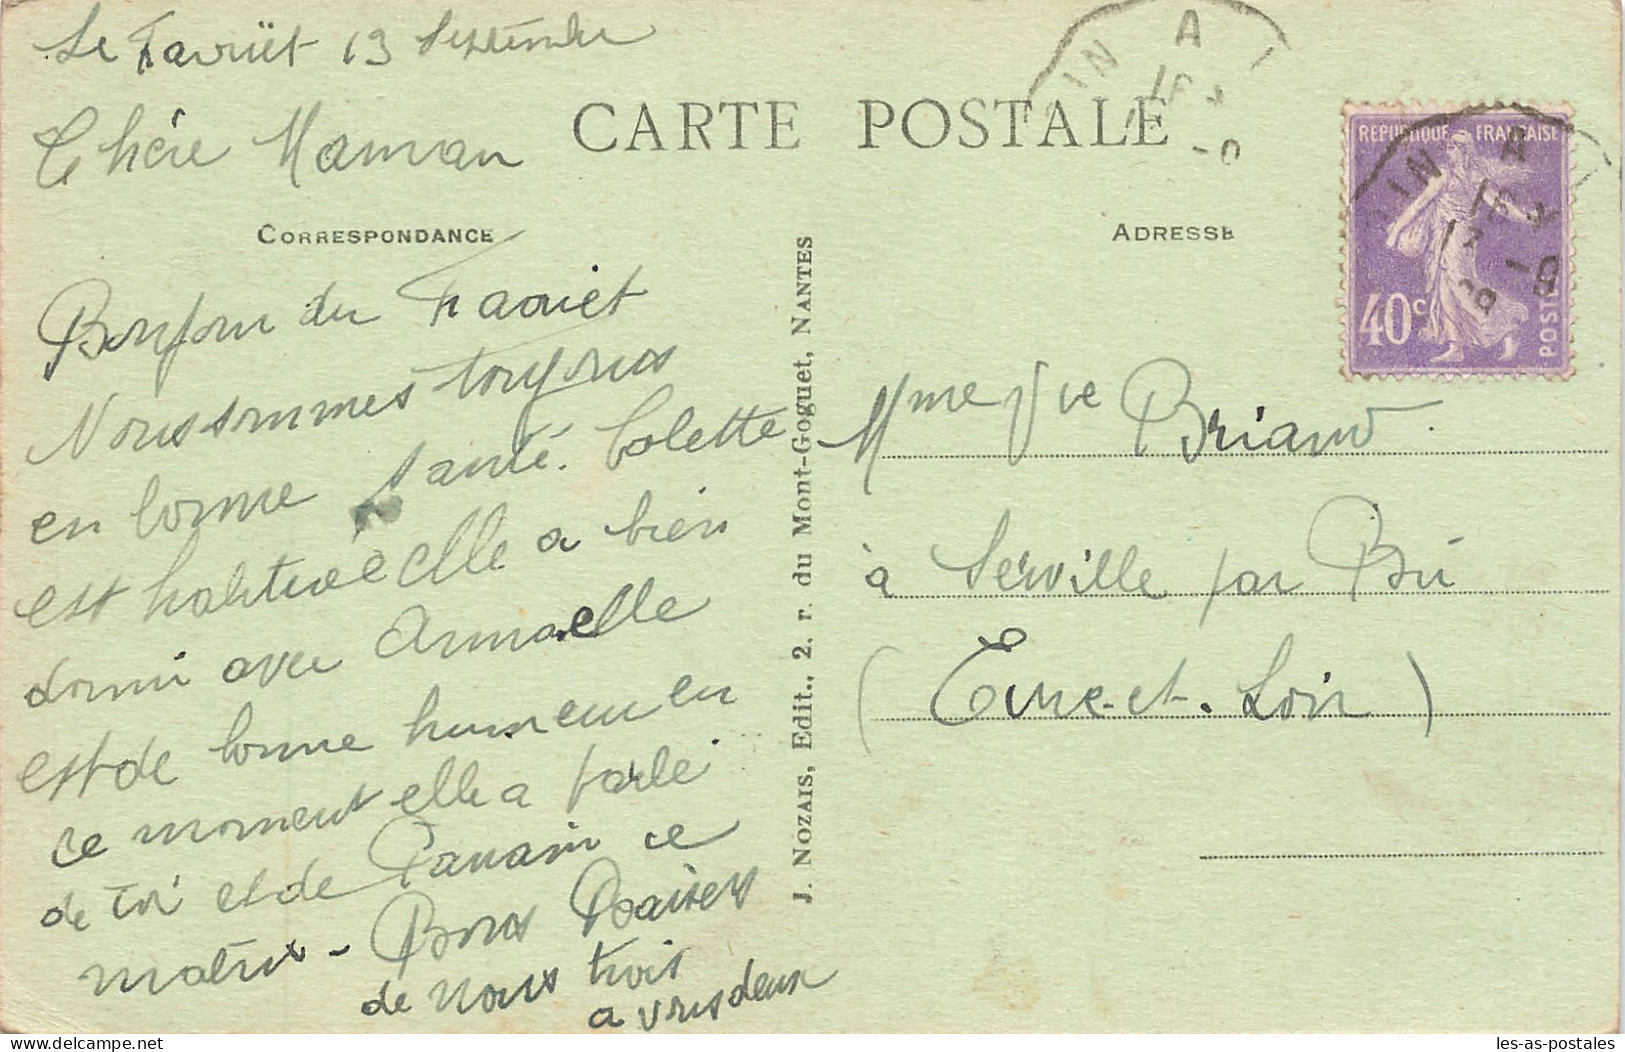 Le Faouët 13 Septembre
Chère Maman
CARTE POSTALE
CORRESPONDANCE
ADRESSE
Bonjour du Faouët
Nous sommes toujours
en bonne santé. Colette
est habituée elle a bien
dormi avec Armaelle
est de bonne humeur en
ce moment elle a parlé
de toi et de Parrain ce
matin - Bons Baisers
de nous trois
a vous deux
J. NOZAIS, Edit., 2, r. du Mont-Goguet, NANTES
REPUBLIQUE FRANÇAISE
40c
POSTES
Mme Vve Briand
à Serville par Bû
(Eure-et-Loir)
delcampe.net
les-as-postales